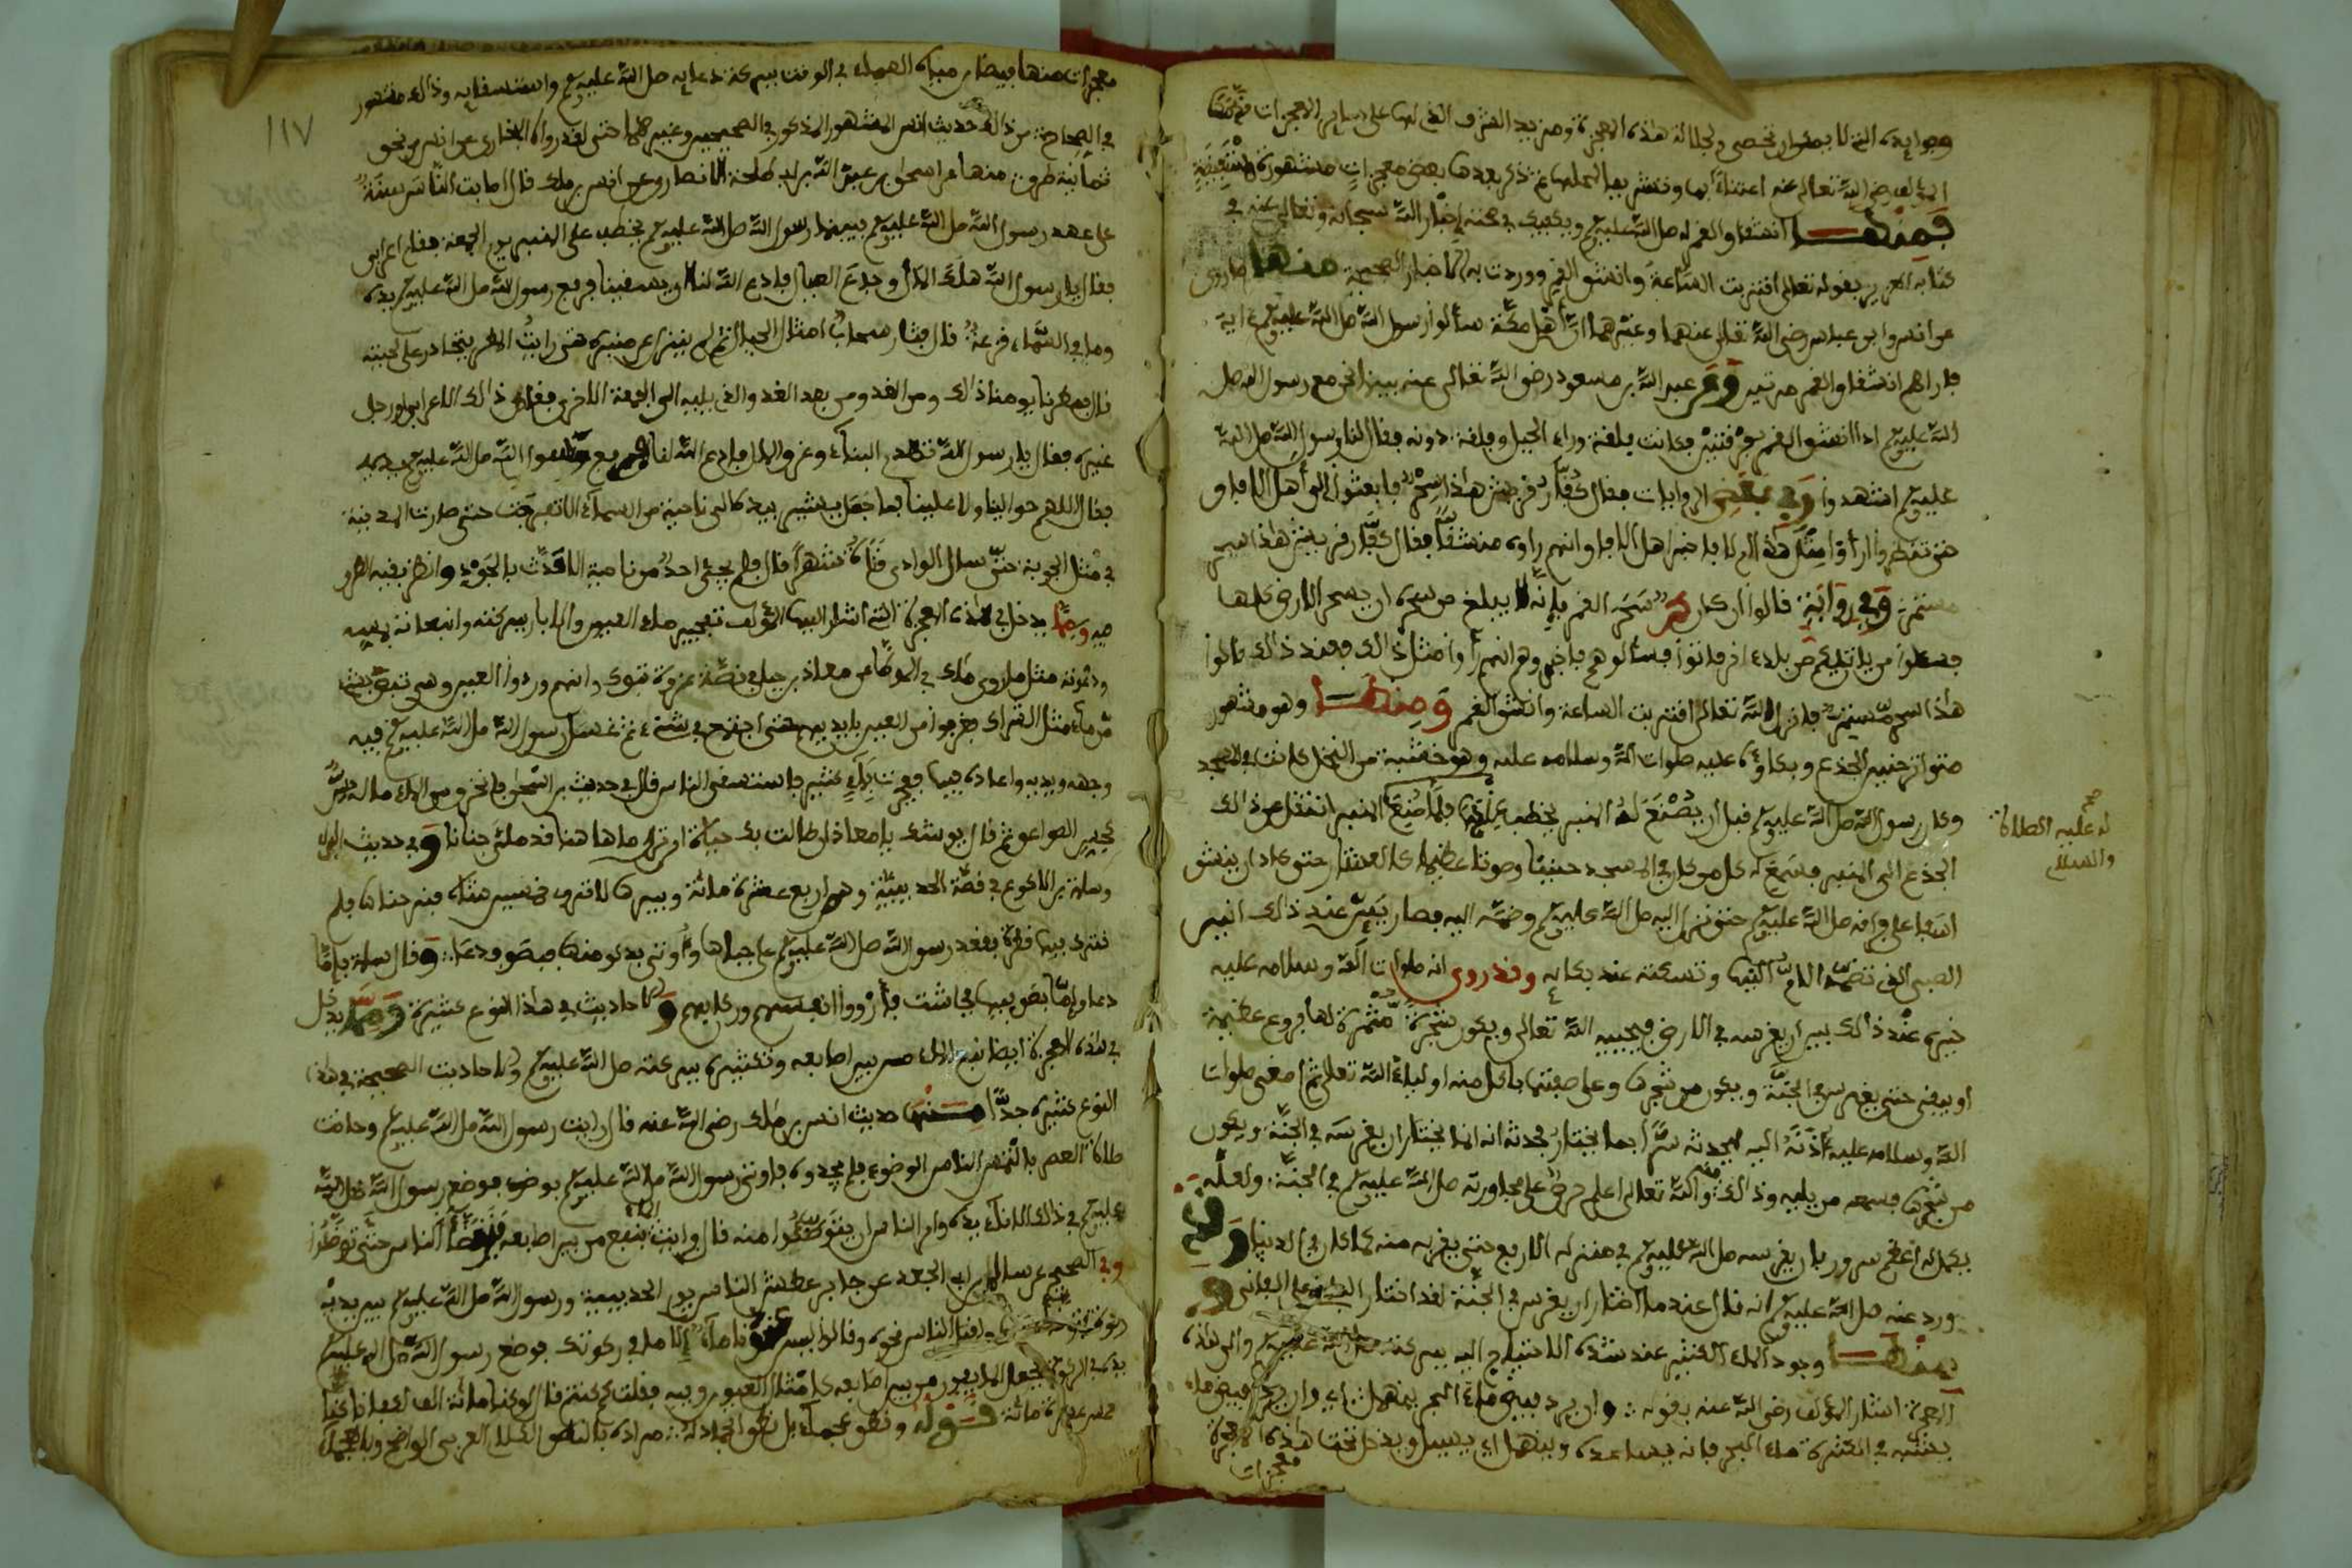 وفوايده التي لا بمقدار تحصى ولجلالة هذه المعجزة ومزيد الشرف الذي لها على ساير المعجزات
المؤلف رضي الله تعالى عنه اعتناء بها ونشير بها لجملها ثم نذكر بعدها بعض معجزات مشهورة
فمنها انشقاق القمر له صلى الله عليه وسلم ويكفيك في صحته إخبار الله سبحانه وتعالى عنه في
كتابه العزيز بقوله تعالى اقتربت الساعة وانشق القمر ووردت به الاخبار الصحيحة منها ما روي
عن انس وابن عباس رضي الله تعالى عنهما وغيرهما أن أهل مكة سألوا رسول الله صلى الله عليه وسلم ءاية
فاراهم انشقاق القمر مرتين وعن عبد الله بن مسعود رضي الله تعالى عنه بينا نحن مع رسول الله صلى
الله عليه وسلم اذا انشق القمر فرقتين فكانت فلقة وراء الجبل وفلقة دونه فقال لنا رسول الله صلى الله
عليه وسلم اشهدوا وفي بعض الروايات فقال كفار قريش هذا سحر فابعثوا الى أهل الافاق
حتى تنظروا أرأوا مثل هذا ام لا فاخبر اهل الافاق انهم راوه منشقا فقال كفار قريش هذا سحر
مستمر وفي رواية قالوا إن كان سحر القمر فإنه لا يبلغ من سحره ان يسحر الارض كلها
فسلوا من ياتيكم من بلاد اخر فاتوا فسألوهم فاخبروهم انهم رأوا مثل ذالك فعند ذالك قالوا
هذا سحر مستمر فانزل الله تعالى اقتربت الساعة وانشق القمر ومنها وهو مشهور
متواتر حنين الجذع وبكاؤه عليه صلوات الله وسلامه عليه وهو خشبة من النخل كانت في المسجد
وكان رسول الله صلى الله عليه وسلم قبل ان يصنع له المنبر يخطب عليها فلما صنع المنبر انتقل عن ذالك
الجذع الى المنبر فسمع له كل من كان في المسجد حنينا وصوتا عظيما كالعشار حتى كاد ان ينشق
اسفا على فراقه صلى الله عليه وسلم حتى نزل اليه صلى الله عليه وسلم وضمه اليه فصار يئن عند ذالك انين
الصبي الذي تضمه الام اليها وتسكته عند بكايه وقد روي انه صلوات الله وسلامه عليه
خيره عند ذالك بين ان يغرسه في الارض فيحييه الله تعالى ويكون شجرة مثمرة لها فروع عظيمة
او يبقى حتى يغرس في الجنة ويكون من شجرها وعلى صفتها ياكل منه اولياء الله تعالى ثم أصغى صلوات
الله وسلامه عليه أذنه اليه ليحدثه سرا بما يختار فحدثه انه انما يختار ان يغرسه في الجنة ويكون
من شجرها فسمعه من يليه وذالك والله تعالى اعلم حرصا على مجاورته صلى الله عليه وسلم في الجنة ولعله
يكمل له أعظم سرور بان يغرسه صلى الله عليه وسلم في منزله الارفع حتى يقربه منه كما كان في الدنيا وقد
ورد عنه صلى الله عليه وسلم انه قال عندما اختار ان يغرس في الجنة لقد اختار الباقي على الفاني و
منها وجود الماء الكثير عند شدة الاحتياج اليه ببركته صلى الله عليه وسلم والى هذه
المعجزة اشار المؤلف رضي الله عنه بقوله وان يرد يفيض ماء البحر ينهمل اي وان يرد يفيض ماء
يشبه في الكثرة ماء البحر فانه يساعده وينهمل اي يسيل ويدخل تحت هذه المعجزة
معجزات
له عليه الصلاة
والسلام
صح
١١٧
معجزات منها فيضان مياه السماء في الوقت ببركة دعايه صلى الله عليه وسلم واستسقايه وذالك مشهور
في الصحاح من ذالك حديث انس المشهور المذكور في الصحيحين وغيرهما حتى لقد رواه البخاري عن انس من نحو
ثمانية طرق منها عن اسحاق بن عبد الله بن ابي طلحة الانصاري عن انس بن ملك قال اصابت الناس سنة
على عهد رسول الله صلى الله عليه وسلم فبينما رسول الله صلى الله عليه وسلم يخطب على المنبر يوم الجمعة فقام اعرابي
فقال يا رسول الله هلك المال وجاع العيال فادع الله لنا ان يسقينا فرفع رسول الله صلى الله عليه وسلم يديه
وما في السماء قزعة قال فثار سحاب امثال الجبال ثم لم ينزل عن منبره حتى رايت المطر يتحادر على لحيته
قال فمطرنا يومنا ذالك ومن الغد ومن بعد الغد والذي يليه الى الجمعة الاخرى فقام ذالك الاعرابي او رجل
غيره فقال يا رسول الله تهدم البناء وغرق المال فادع الله لنا فرفع رسول الله صلى الله عليه وسلم يديه
فقال اللهم حوالينا ولا علينا فما جعل يشير بيده الى ناحية من السماء الا تفرجت حتى صارت المدينة
في مثل الجوبة حتى سال الوادي قناة شهرا قال فلم يجئ احد من ناحية الا حدث بالجود وانظر بقية الطرق
فيه ومما يدخل في هذه المعجزة التي اشار اليها المؤلف تفجير ماء العيون والابار ببركته وانبعاثه بمسه
ودعوته مثل ما روى ملك في الموطأ عن معاذ بن جبل في قصة غزوة تبوك وانهم وردوا العين وهي تبض بشيء
من ماء مثل الشراك فغرفوا من العين بايديهم حتى اجتمع في شيء ثم غسل رسول الله صلى الله عليه وسلم فيه
وجهه ويديه واعاده فيها فجرت بماء كثير فاستسقى الناس قال في حديث بن اسحق فانخرق من الماء ما له حس
كحس الصواعق ثم قال يوشك يا معاذ ان طالت بك حياة ان ترى ما هاهنا قد ملئ جنانا وفي حديث البراء
وسلمة بن الاكوع في قصة الحديبية وهم اربع عشرة مائة وبيرها لا تروي خمسين شاة فنزحناها فلم
نترك فيها قطرة فقعد رسول الله صلى الله عليه وسلم على جباها وأوتي بدلو منها فبصق ودعا وقال سلمة فإما
دعا وإما بصق فيها فجاشت فأرووا انفسهم وركابهم والاحاديث في هذا النوع كثيرة ومما يدخل
في هذه المعجزة ايضا نبع الماء من بين اصابعه وتكثيره ببركته صلى الله عليه وسلم والاحاديث الصحيحة في هذا
النوع كثيرة جدا منها حديث انس بن ملك رضي الله عنه قال رايت رسول الله صلى الله عليه وسلم وحانت
صلاة العصر فالتمس الناس الوضوء فلم يجدوه فاوتي رسول الله صلى الله عليه وسلم بوضوء فوضع رسول الله صلى الله
عليه وسلم في ذالك الاناء يده وامر الناس ان يتوضئوا منه قال فرايت الماء ينبع من بين اصابعه فتوضأ الناس حتى توضؤا
وفي الصحيح عن سالم بن ابي الجعد عن جابر عطش الناس يوم الحديبية ورسول الله صلى الله عليه وسلم بين يديه
ركوة فتوضأ منها واقبل الناس نحوه وقالوا ليس عندنا ماء إلا ما في ركوتك فوضع رسول الله صلى الله عليه وسلم
يده في الركوة فجعل الماء يفور من بين اصابعه كامثال العيون وفيه فقلت كم كنتم قال لو كنا مائة الف لكفانا كنا
خمس عشرة مائة قوله